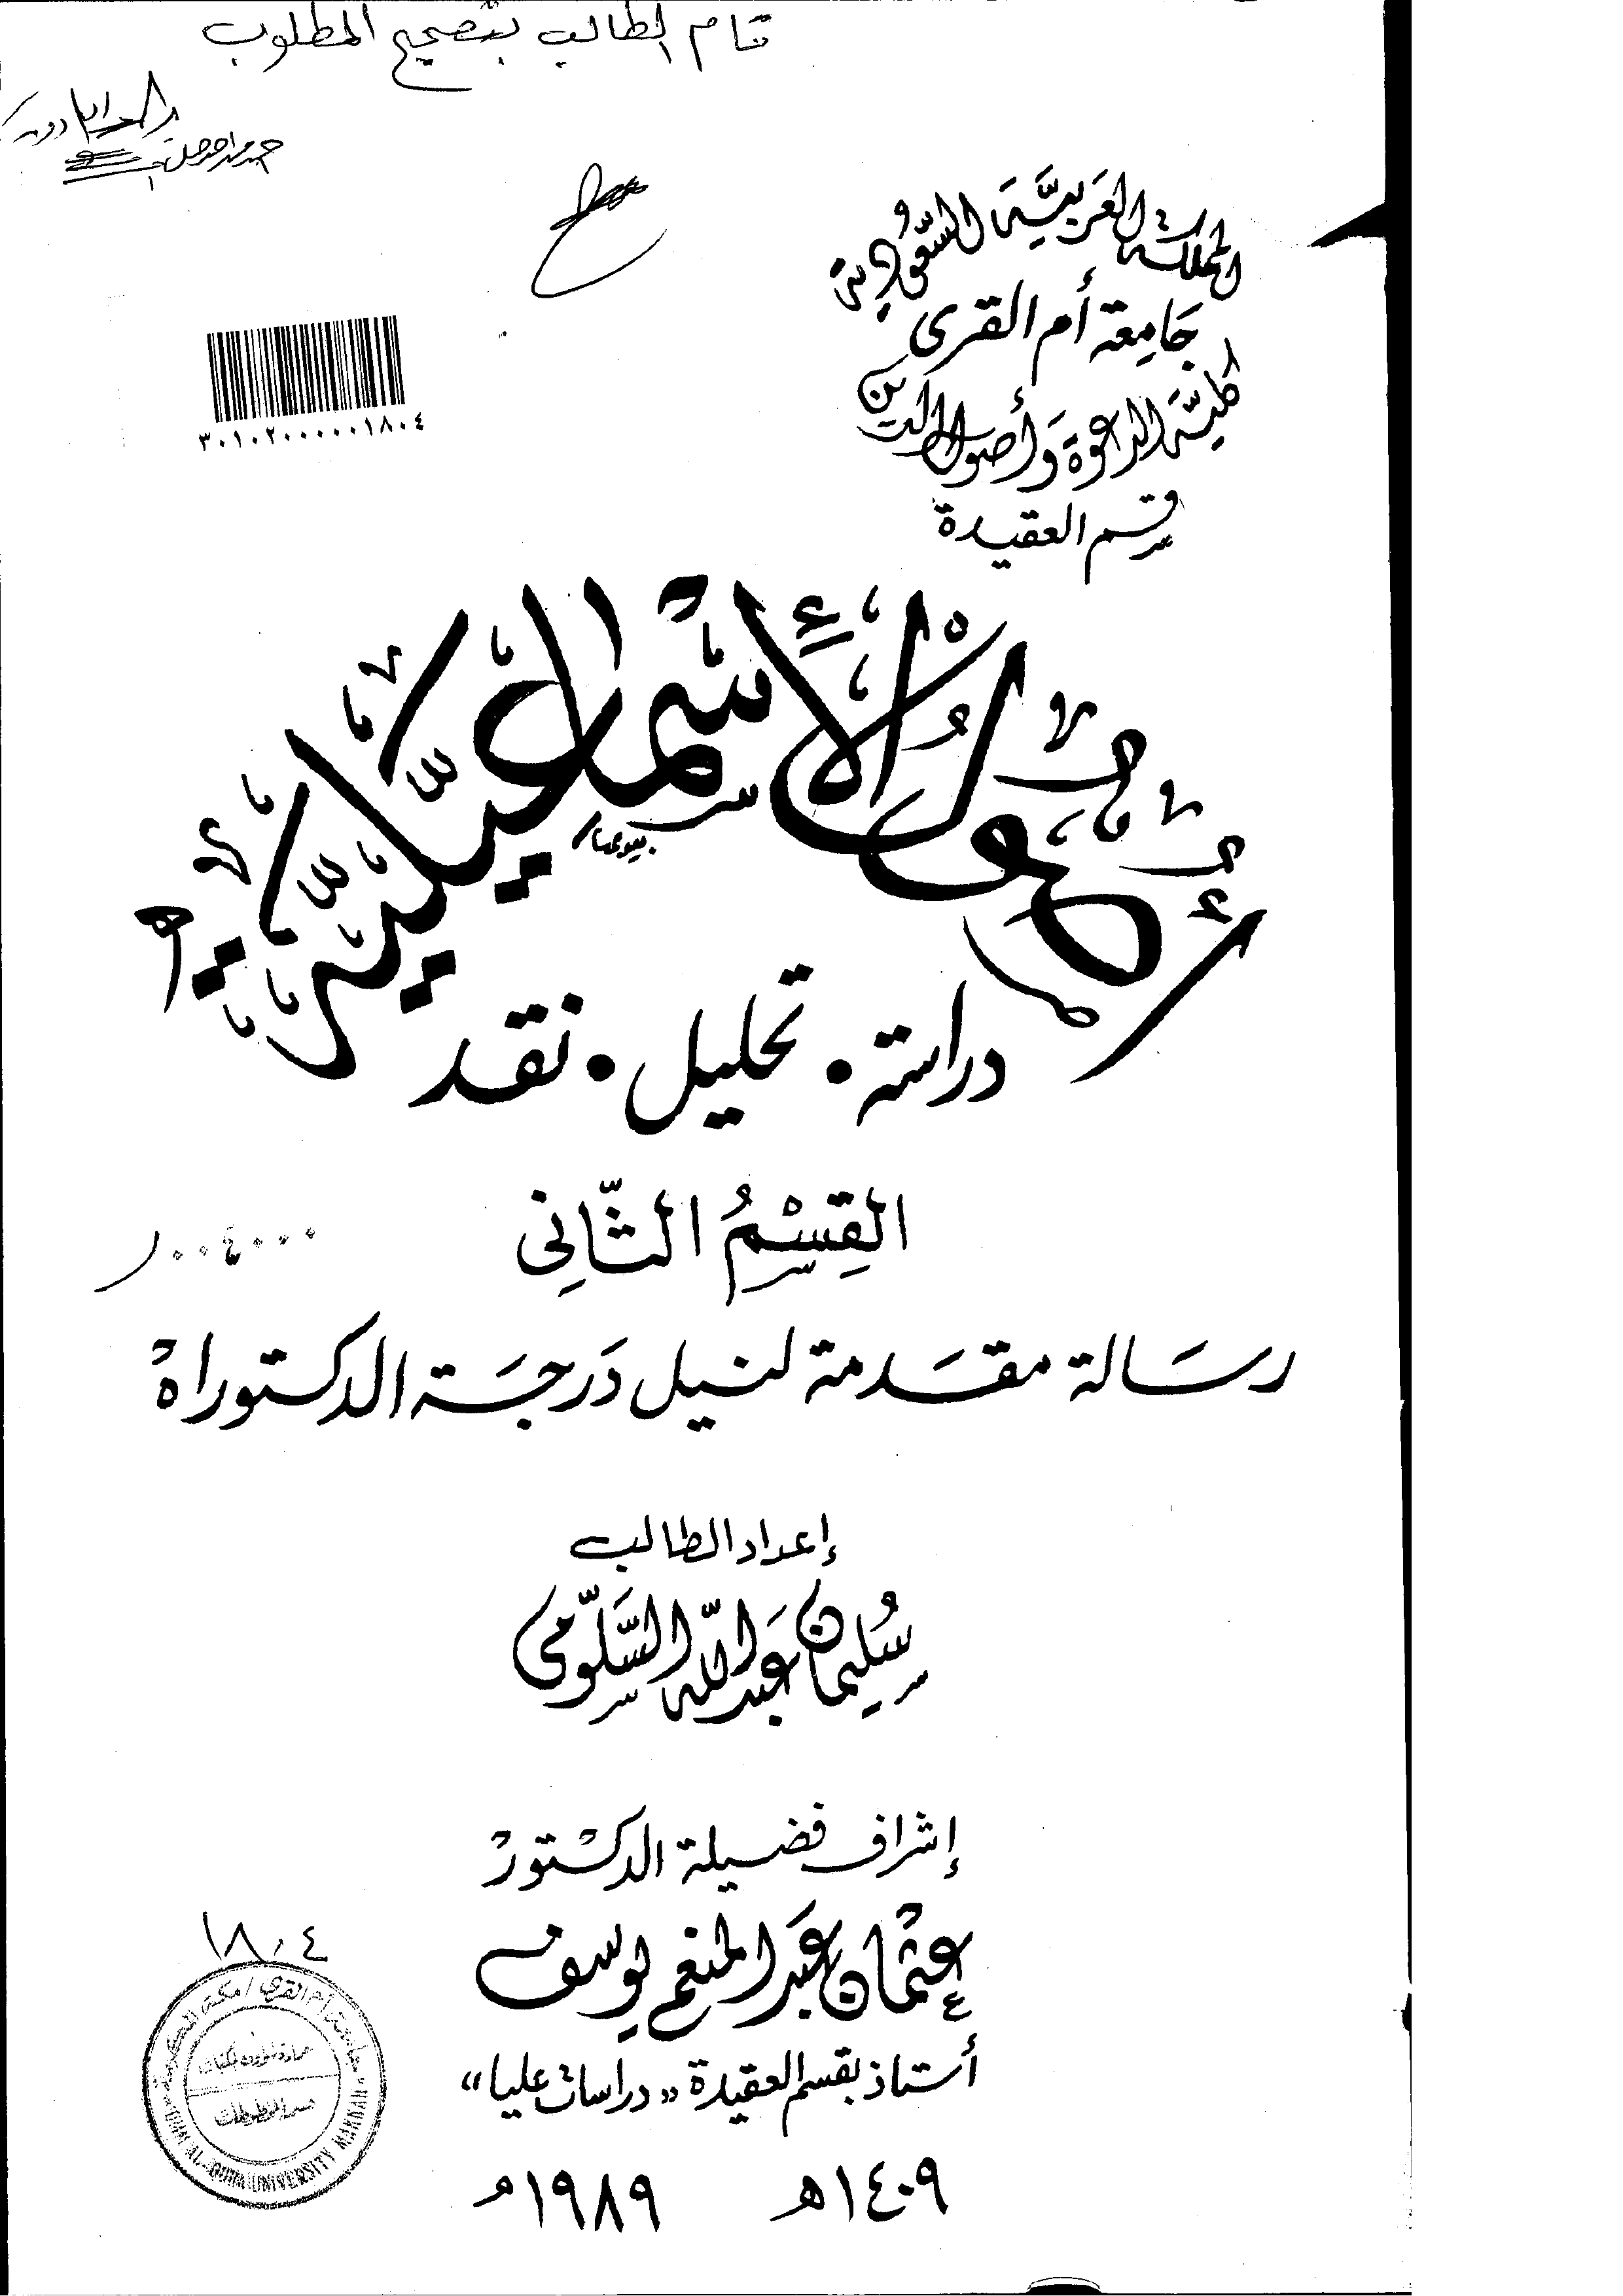 قام الطالب بتصحيح المطلوب
المملكة العربية السعودية
جامعة أم القرى
كلية الدعوة وأصول الدين
قسم العقيدة
٣٠١٠٢٠٠٠٠٠١٨٠٤
أصول الإسماعيلية
دراسة • تحليل • نقد
القِسْمُ الثَّانِى
٠٠٤٠٠٠
رسَالة مقَدمة لنيل دَرجَة الدكتوراهْ
إعداد الطالب
سُليمان عَبدالله السَّلّومى
إشراف فضيلة الدكْتورْ
عثمان عَبد المنعم يوسف
أستاذ بقسم العقيدة «دراسات عليا»
١٤٠٩هـ ١٩٨٩م
١٨٠٤
جامعة أم القرى / مكة المكرمة
UMM AL-QURA UNIVERSITY MAKKAH